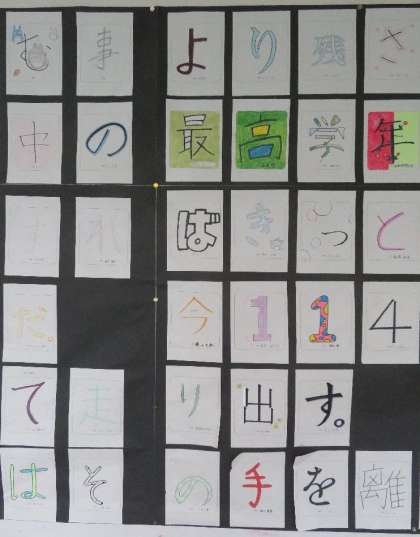 む事より残さ
中の最高学年
ればきっと
だ。今114
て走り出す。
はその手を離